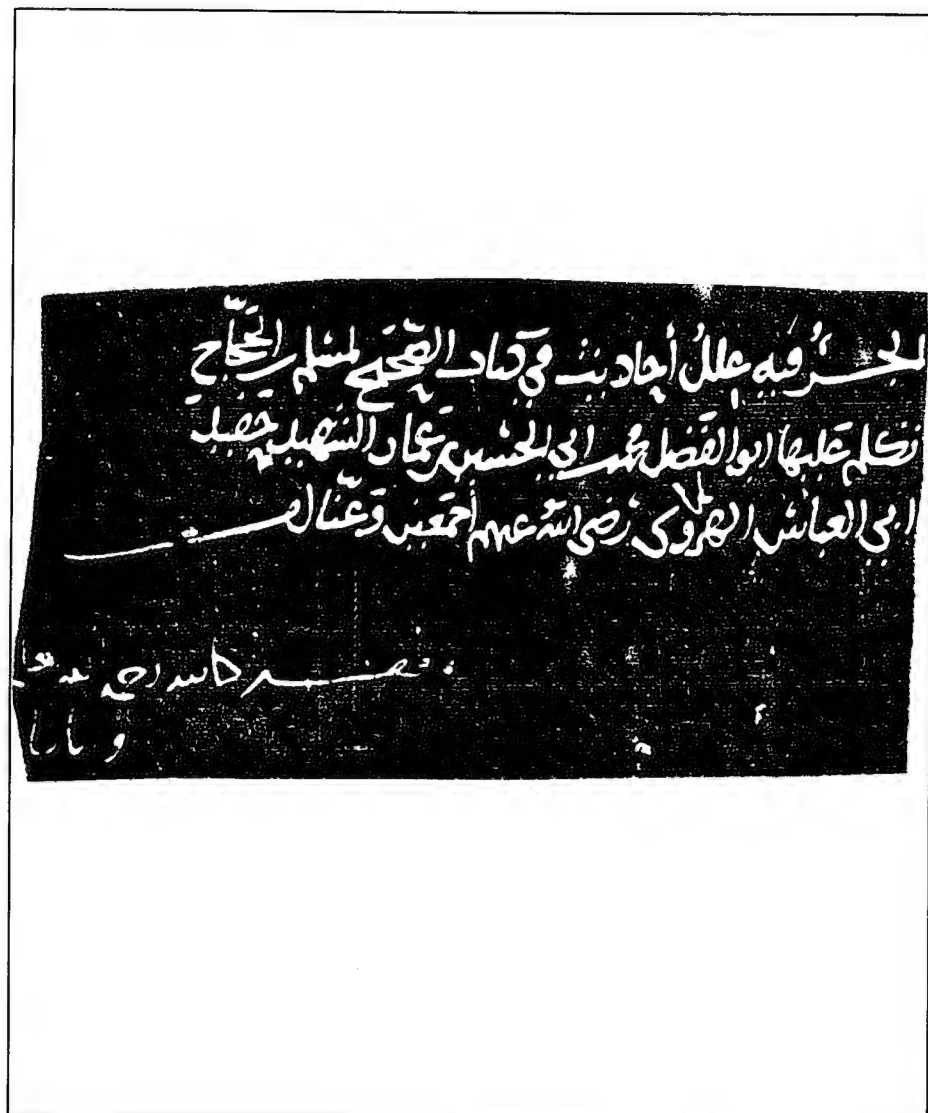 الجزء فيه علل أحاديث في كتاب الصحيح لمسلم بن الحجاج
تكلم عليها أبو الفضل محمد بن أبي الحسين بن عمار الشهيد حفيد
أبي العباس الهروي رضي الله عنهم أجمعين وعنا
كاتبه